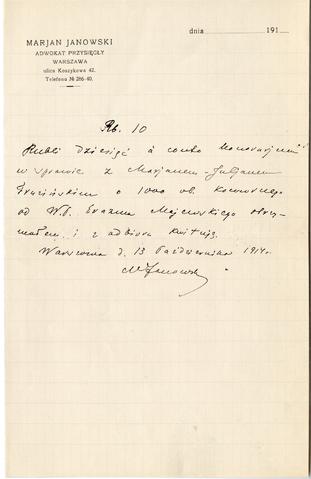 MARJAN JANOWSKI
ADWOKAT PRZYSIĘGŁY
WARSZAWA
ulica Koszykowa 42.
Telefonu № 286-40.
dnia 191
Rb. 10
Rubli dziesięć à conto honorarjum
w sprawie z Marjanem-Juljanem
o 1000 rb.
od W.P. Erazma Majewskiego otrzy-
małem i z odbioru kwituję.
Warszawa d. 13 Października 1914 r.
MJanowski